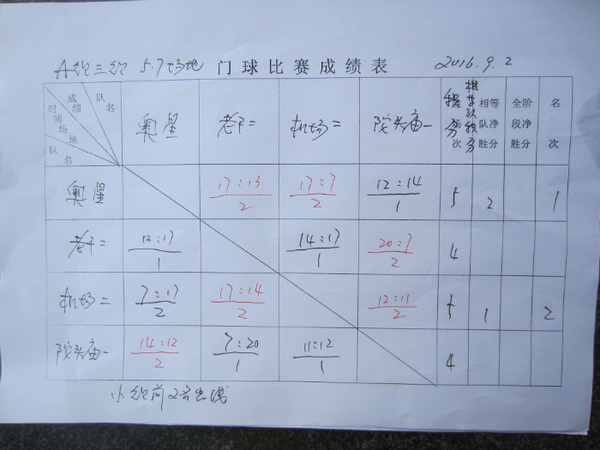 A组三组 5.7场地 门球比赛成绩表 2016.9.2
成绩 队名 时间 场地 队名 奥星 老干二 机场二 院头庙一 积分 次 相等队积分 相等队净胜分 全阶段净胜分 名次
奥星 17:13 2 17:7 2 12:14 1 5 2 1
老干二 13:17 1 14:17 1 20:7 2 4
机场二 7:17 2 17:14 2 12:11 2 5 1 2
院头庙一 14:12 2 7:20 1 11:12 1 4
小组前2名出线